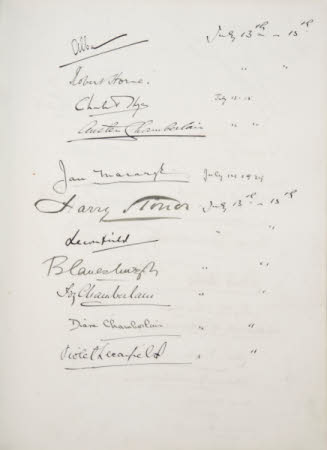 Alba July 13th – 15th
Robert Horne. " "
July 13 - 15
Austen Chamberlain " "
Jan Masaryk July 14 1929
Harry Stonor July 13th – 15th
Leconfield " "
Blanesburgh " "
Ivy Chamberlain " "
Diane Chamberlain " "
Violet Leconfield " "